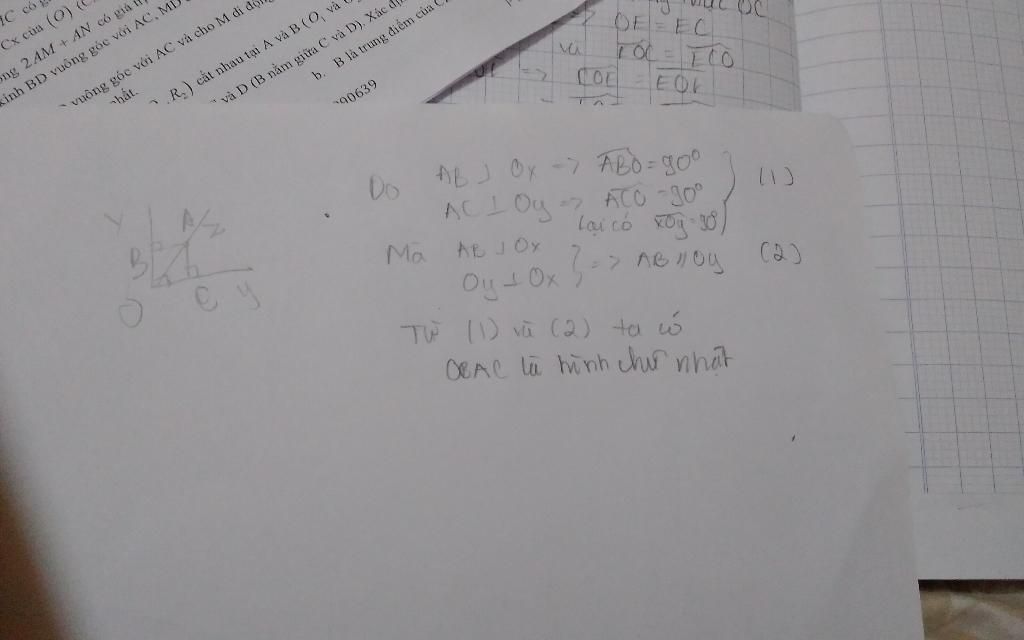 Cx của (O)
ong 2AM + AN có giá trị
kính BD vuông góc với AC, MD
vuông góc với AC và cho M di động
nhất.
R₂) cắt nhau tại A và B (O₁ và
và D (B nằm giữa C và D), Xác
b. B là trung điểm của
00639
OE = EC
và EOC = ECO
=> COE = EOF
Do AB ⊥ Ox => ABO = 90°
AC ⊥ Oy => ACO = 90° (1)
lại có xOy = 90°
Mà AB ⊥ Ox
Oy ⊥ Ox => AB // Oy (2)
Từ (1) và (2) ta có
OBAC là hình chữ nhật
y A z
B
O C y